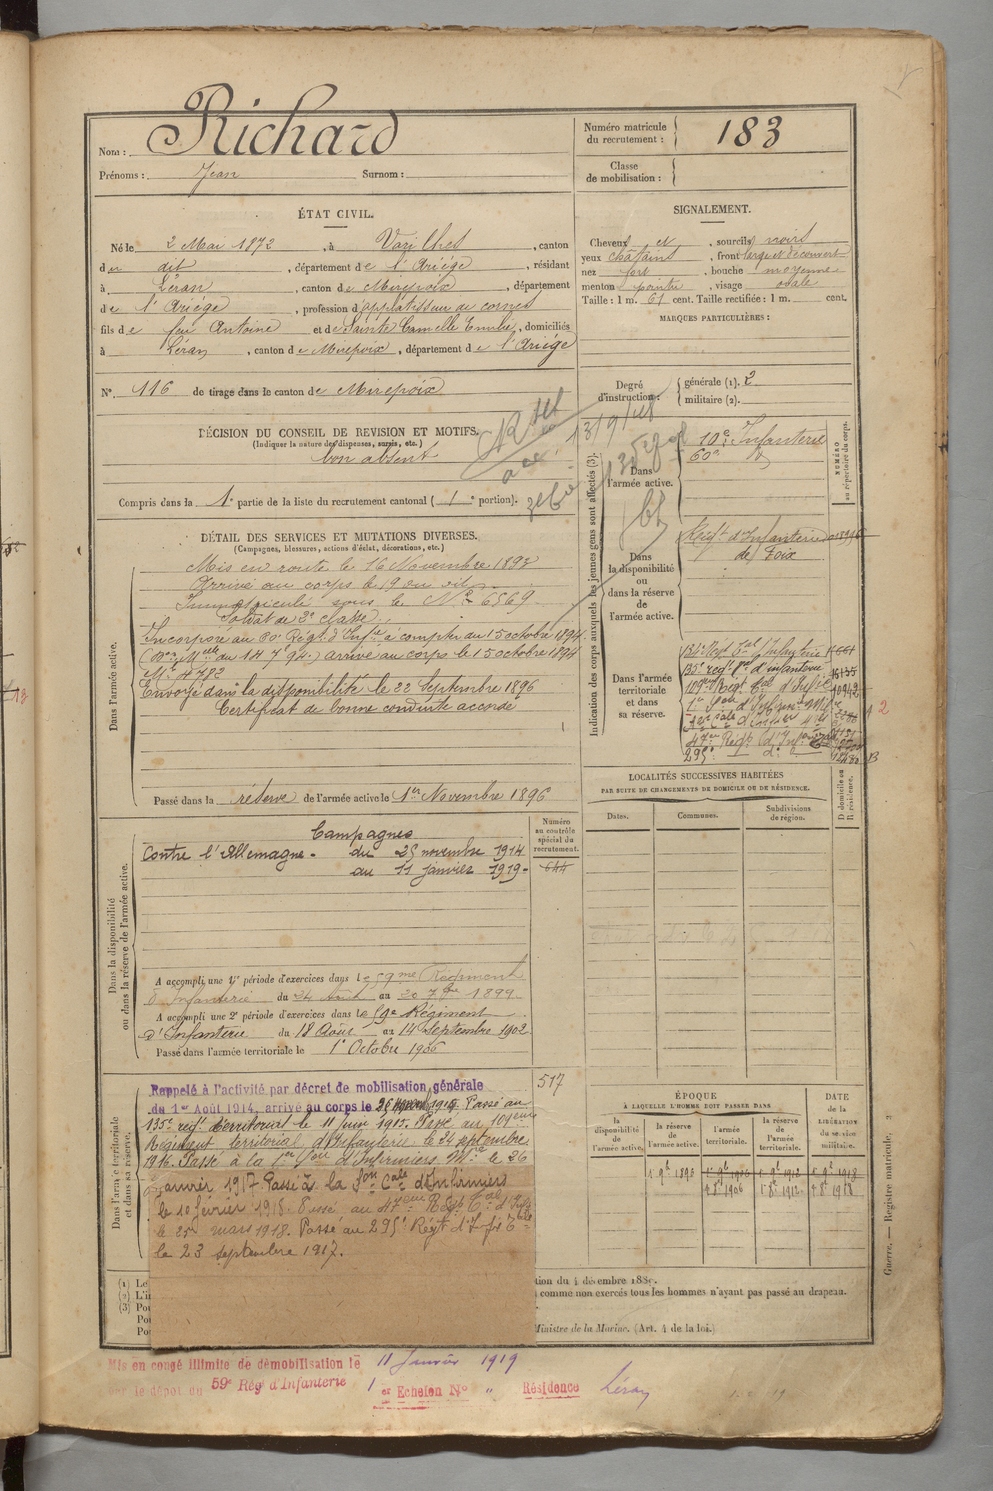 Nom : Richard
Prénoms : Jean Surnom :
Numéro matricule du recrutement : 183
Classe de mobilisation :
ÉTAT CIVIL.
Né le 2 Mai 1872, à Varilhes, canton
du dit, département de l'Ariége, résidant
à Léran, canton de Mirepoix, département
de l'Ariége, profession d'
fils de feu Antoine et de Sainte Camelle Emilie, domiciliés
à Léran, canton de Mirepoix, département de l'Ariége
N° 116 de tirage dans le canton de Mirepoix
DÉCISION DU CONSEIL DE REVISION ET MOTIFS.
(Indiquer la nature des dispenses, sursis, etc.)
bon absent
Compris dans la 1e partie de la liste du recrutement cantonal ( 1e portion).
SIGNALEMENT.
Cheveux et, sourcils noirs
yeux châtains, front large et découvert
nez fort, bouche moyenne
menton pointu, visage ovale
Taille : 1 m. 61 cent. Taille rectifiée : 1 m. cent.
MARQUES PARTICULIÈRES :
Degré d'instruction : générale (1). 2
militaire (2).
13/9/18
DÉTAIL DES SERVICES ET MUTATIONS DIVERSES.
(Campagnes, blessures, actions d'éclat, décorations, etc.)
Dans l'armée active.
Mis en route le 16 Novembre 1893
Arrivé au corps le 19 du dit
Immatriculé sous le N° 6569
Soldat de 2e classe
Incorporé au 60e Régt. d'Infie à compter du 15 octobre 1894
arrivé au corps le 15 octobre 1894
Mle 4782
Envoyé dans la disponibilité le 22 Septembre 1896
Certificat de bonne conduite accordé
Passé dans la réserve de l'armée active le 1er Novembre 1896
Indication des corps auxquels les jeunes gens sont affectés (3).
NUMÉRO au répertoire du corps.
Dans l'armée active.
10e Infanterie
60e d°
Dans la disponibilité ou dans la réserve de l'armée active.
Régt d'Infanterie
de Foix
Dans l'armée territoriale et dans sa réserve.
135e régt tal d'infanterie
47e Régt
295e d°
LOCALITÉS SUCCESSIVES HABITÉES
PAR SUITE DE CHANGEMENTS DE DOMICILE OU DE RÉSIDENCE.
Dates. Communes. Subdivisions de région. D domicile ou R résidence.
Dans la disponibilité ou dans la réserve de l'armée active.
Numéro au contrôle spécial du recrutement.
644
Campagnes
Contre l'Allemagne - du 25 novembre 1914
au 11 janvier 1919 -
A accompli une 1re période d'exercices dans le 59me Régiment
d'Infanterie du 24 Août au 20 7bre 1899
A accompli une 2e période d'exercices dans le 59e Régiment
d'Infanterie du 18 Août au 14 Septembre 1902
Passé dans l'armée territoriale le 1er Octobre 1906
Dans l'armée territoriale et dans sa réserve.
517
Rappelé à l'activité par décret de mobilisation générale
du 1er Août 1914, arrivé au corps le 25 Passé au
135e régt territorial le 11 juin 1915. Passé au
Régiment territorial d'Infanterie le 24 septembre
1916. Passé à la 1ère Son d'Infirmiers Mre le 26
Janvier 1917. Passé à la d'Infirmiers
le 10 février 1918. Passé au 47ème Régt tal d'Infie
le 25 mars 1918. Passé au 295e Régt
le 23 septembre 1917.
ÉPOQUE
À LAQUELLE L'HOMME DOIT PASSER DANS
la disponibilité de l'armée active.
la réserve de l'armée active.
l'armée territoriale.
la réserve de l'armée territoriale.
DATE de la LIBÉRATION du service militaire.
1 9bre 1896 1 9bre 1906 1 9bre 1912 1 9bre 1918
1 8bre 1906 1 8bre 1912 1 8bre 1918
(1) Le
(2) L'i
(3) Pou
Pou
Pou
tion du 4 décembre 1889.
comme non exercés tous les hommes n'ayant pas passé au drapeau.
Ministre de la Marine. (Art. 4 de la loi.)
Guerre. — Registre matricule.
Mis en congé illimité de démobilisation le 11 Janvier 1919
par le dépôt du 59e Rég d'Infanterie 1er Echelon N° " Résidence Léran